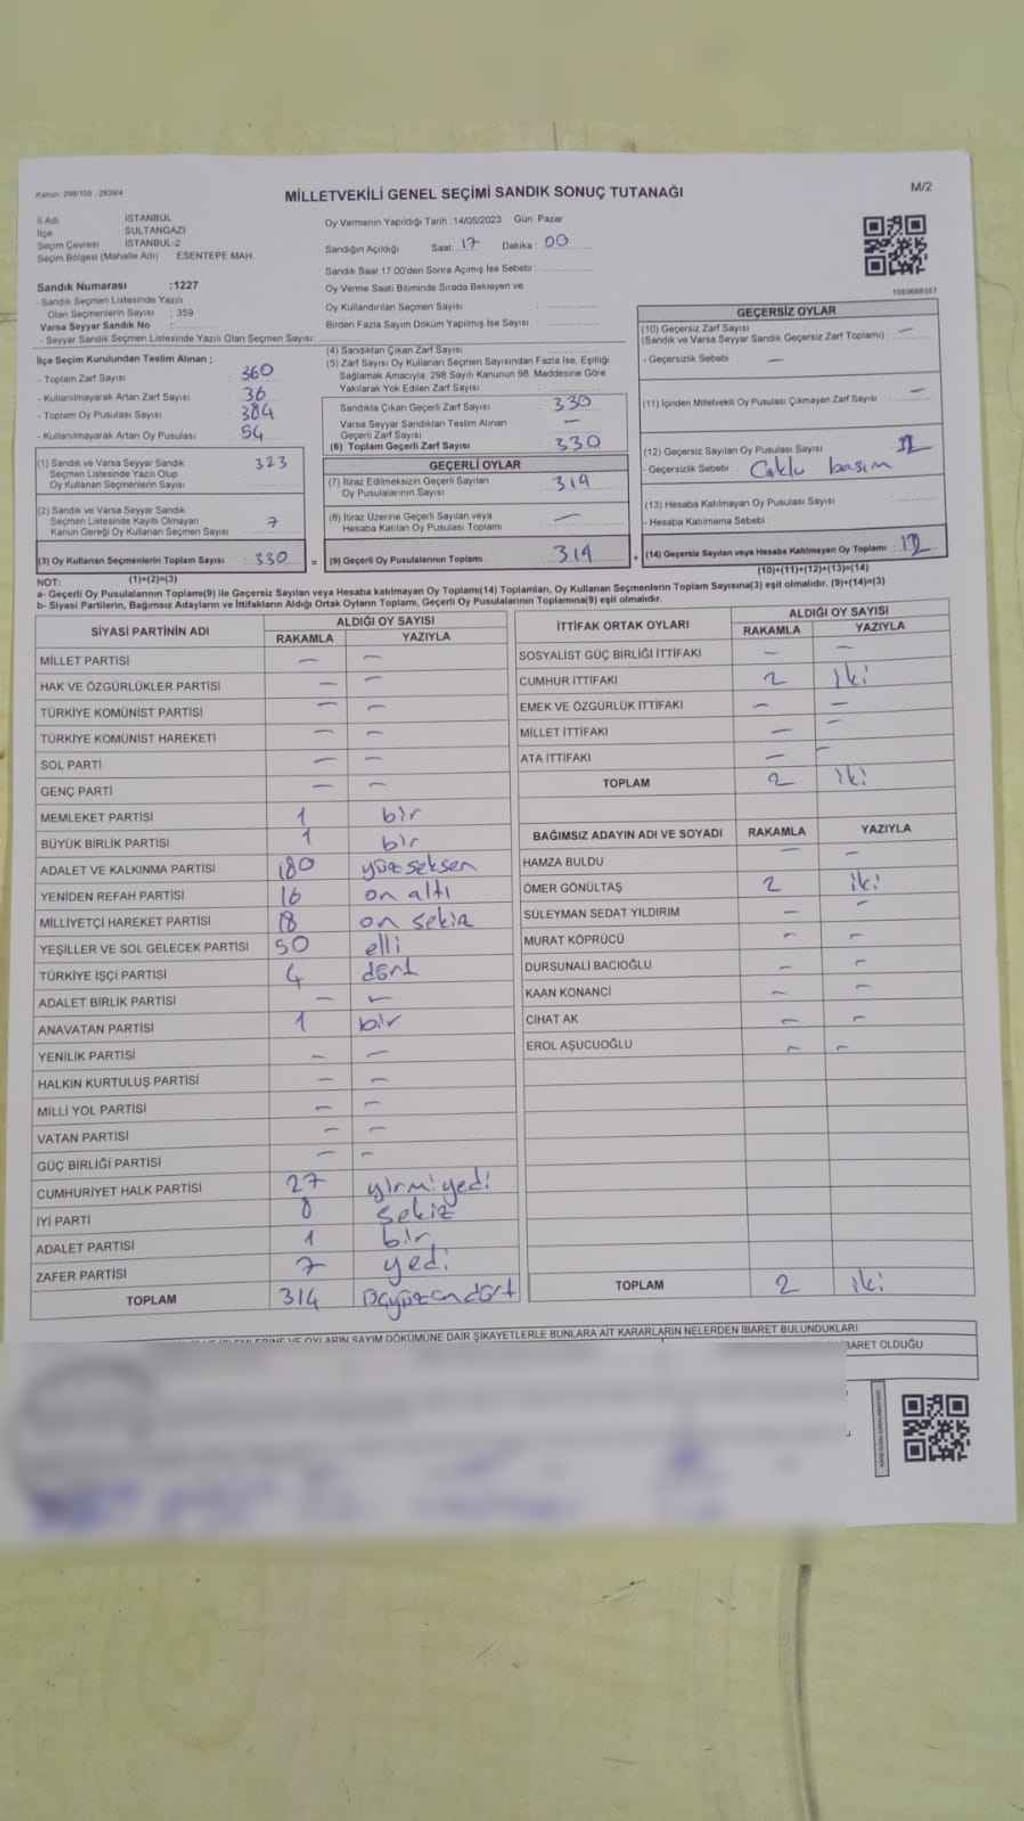 Kanun: 298/105 - 2839/4
MİLLETVEKİLİ GENEL SEÇİMİ SANDIK SONUÇ TUTANAĞI
M/2
İl Adı : İSTANBUL
İlçe : SULTANGAZİ
Seçim Çevresi : İSTANBUL-2
Seçim Bölgesi (Mahalle Adı) : ESENTEPE MAH.
Sandık Numarası :1227
- Sandık Seçmen Listesinde Yazılı
Olan Seçmenlerin Sayısı : 359
Varsa Seyyar Sandık No :
- Seyyar Sandık Seçmen Listesinde Yazılı Olan Seçmen Sayısı:
Oy Vermenin Yapıldığı Tarih :14/05/2023 Gün: Pazar
Sandığın Açıldığı Saat: 17 Dakika : 00
Sandık Saat 17.00'den Sonra Açımış İse Sebebi :
Oy Verme Saati Bitiminde Sırada Bekleyen ve
Oy Kullandırılan Seçmen Sayısı :
Birden Fazla Sayım Döküm Yapılmış İse Sayısı :
İlçe Seçim Kurulundan Teslim Alınan ;
- Toplam Zarf Sayısı : 360
- Kullanılmayarak Artan Zarf Sayısı : 36
- Toplam Oy Pusulası Sayısı : 384
- Kullanılmayarak Artan Oy Pusulası : 54
(1) Sandık ve Varsa Seyyar Sandık
Seçmen Listesinde Yazılı Olup
Oy Kullanan Seçmenlerin Sayısı : 323
(2) Sandık ve Varsa Seyyar Sandık
Seçmen Listesinde Kayıtlı Olmayan
Kanun Gereği Oy Kullanan Seçmen Sayısı : 7
(3) Oy Kullanan Seçmenlerin Toplam Sayısı : 330
(1)+(2)=(3)
(4) Sandıktan Çıkan Zarf Sayısı :
(5) Zarf Sayısı Oy Kullanan Seçmen Sayısından Fazla İse, Eşitliği
Sağlamak Amacıyla, 298 Sayılı Kanunun 98. Maddesine Göre
Yakılarak Yok Edilen Zarf Sayısı :
Sandıkta Çıkan Geçerli Zarf Sayısı : 330
Varsa Seyyar Sandıktan Teslim Alınan
Geçerli Zarf Sayısı : —
(6) Toplam Geçerli Zarf Sayısı : 330
GEÇERLİ OYLAR
(7) İtiraz Edilmeksizin Geçerli Sayılan
Oy Pusulalarının Sayısı : 314
(8) İtiraz Üzerine Geçerli Sayılan veya
Hesaba Katılan Oy Pusulası Toplamı : —
= (9) Geçerli Oy Pusulalarının Toplamı : 314
GEÇERSİZ OYLAR
(10) Geçersiz Zarf Sayısı : —
(Sandık ve Varsa Seyyar Sandık Geçersiz Zarf Toplamı)
- Geçersizlik Sebebi : —
(11) İçinden Milletvekili Oy Pusulası Çıkmayan Zarf Sayısı : —
(12) Geçersiz Sayılan Oy Pusulası Sayısı :
- Geçersizlik Sebebi : Çoklu basım
(13) Hesaba Katılmayan Oy Pusulası Sayısı :
- Hesaba Katılmama Sebebi :
+ (14) Geçersiz Sayılan veya Hesaba Katılmayan Oy Toplamı :
(10)+(11)+(12)+(13)=(14)
NOT:
a- Geçerli Oy Pusulalarının Toplamı(9) ile Geçersiz Sayılan veya Hesaba katılmayan Oy Toplamı(14) Toplamları, Oy Kullanan Seçmenlerin Toplam Sayısına(3) eşit olmalıdır. (9)+(14)=(3)
b- Siyasi Partilerin, Bağımsız Adayların ve İttifakların Aldığı Ortak Oyların Toplamı, Geçerli Oy Pusulalarının Toplamına(9) eşit olmalıdır.
SİYASİ PARTİNİN ADI ALDIĞI OY SAYISI
RAKAMLA YAZIYLA
MİLLET PARTİSİ — —
HAK VE ÖZGÜRLÜKLER PARTİSİ — —
TÜRKİYE KOMÜNİST PARTİSİ — —
TÜRKİYE KOMÜNİST HAREKETİ — —
SOL PARTİ — —
GENÇ PARTİ — —
MEMLEKET PARTİSİ 1 bir
BÜYÜK BİRLİK PARTİSİ 1 bir
ADALET VE KALKINMA PARTİSİ 180 yüz seksen
YENİDEN REFAH PARTİSİ 16 on altı
MİLLİYETÇİ HAREKET PARTİSİ 18 on sekiz
YEŞİLLER VE SOL GELECEK PARTİSİ 50 elli
TÜRKİYE İŞÇİ PARTİSİ 4 dört
ADALET BİRLİK PARTİSİ — —
ANAVATAN PARTİSİ 1 bir
YENİLİK PARTİSİ — —
HALKIN KURTULUŞ PARTİSİ — —
MİLLİ YOL PARTİSİ — —
VATAN PARTİSİ — —
GÜÇ BİRLİĞİ PARTİSİ — —
CUMHURİYET HALK PARTİSİ 27 yirmi yedi
İYİ PARTİ 8 sekiz
ADALET PARTİSİ 1 bir
ZAFER PARTİSİ 7 yedi
TOPLAM 314
İTTİFAK ORTAK OYLARI ALDIĞI OY SAYISI
RAKAMLA YAZIYLA
SOSYALİST GÜÇ BİRLİĞİ İTTİFAKI — —
CUMHUR İTTİFAKI 2 iki
EMEK VE ÖZGÜRLÜK İTTİFAKI — —
MİLLET İTTİFAKI — —
ATA İTTİFAKI — —
TOPLAM 2 iki
BAĞIMSIZ ADAYIN ADI VE SOYADI RAKAMLA YAZIYLA
HAMZA BULDU — —
ÖMER GÖNÜLTAŞ 2 iki
SÜLEYMAN SEDAT YILDIRIM — —
MURAT KÖPRÜCÜ — —
DURSUNALİ BACIOĞLU — —
KAAN KONANCI — —
CİHAT AK — —
EROL AŞUCUOĞLU — —
TOPLAM 2 iki
VE OYLARIN SAYIM DÖKÜMÜNE DAİR ŞİKAYETLERLE BUNLARA AİT KARARLARIN NELERDEN İBARET BULUNDUKLARI
İBARET OLDUĞU